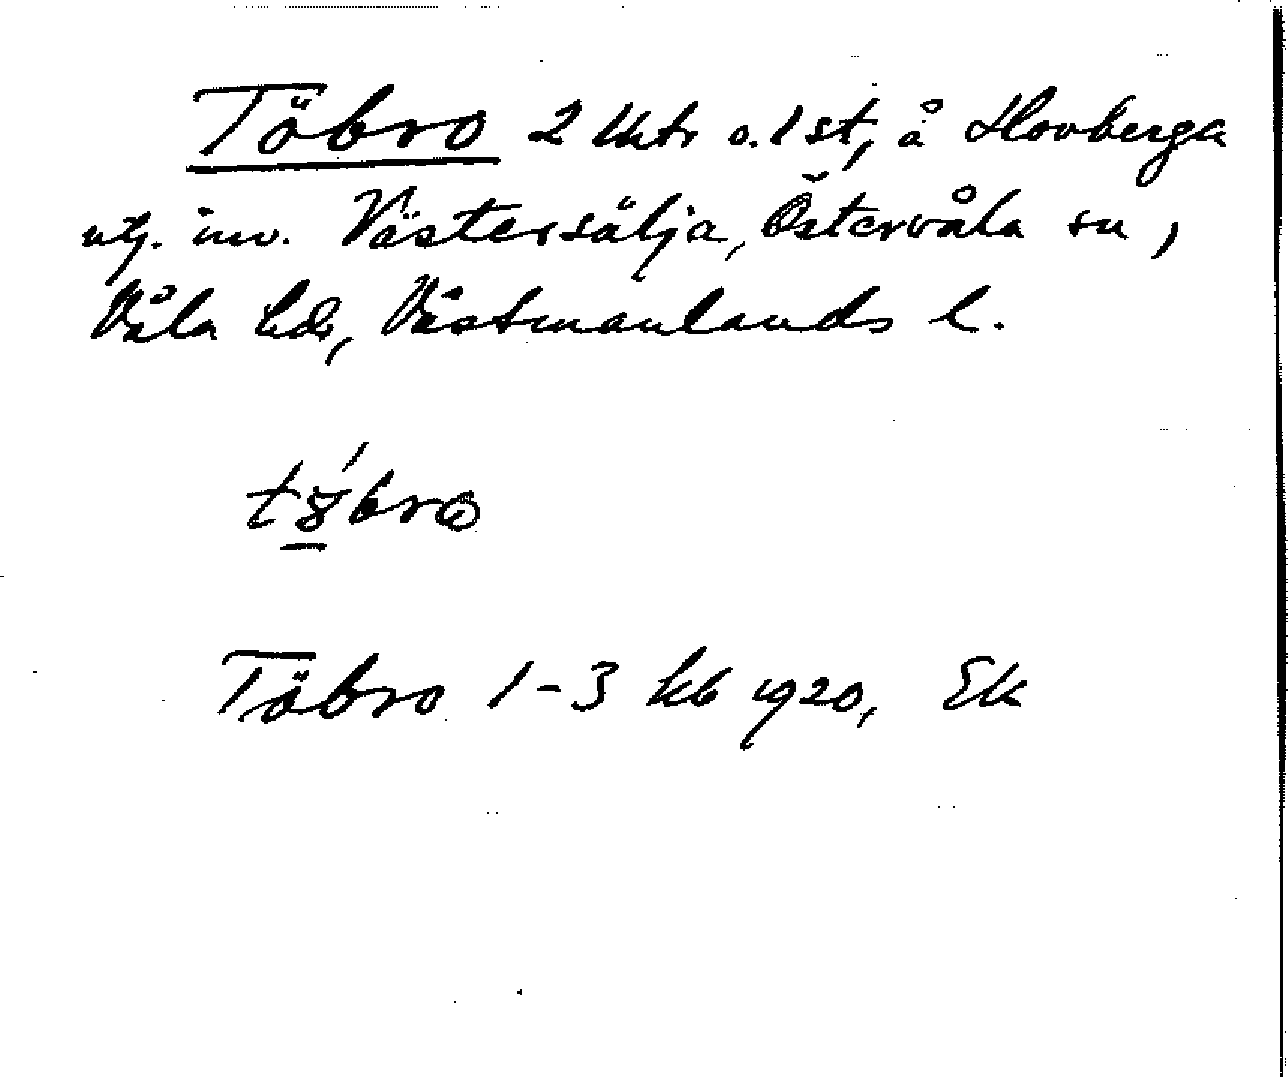 Töbro 2 lhtr o. 1 st, å Hovberga
utj. inv. Västersälja, Östervåla sn,
Våla hd, Västmanlands l.
Töbro 1-3 kb 1920, Ek